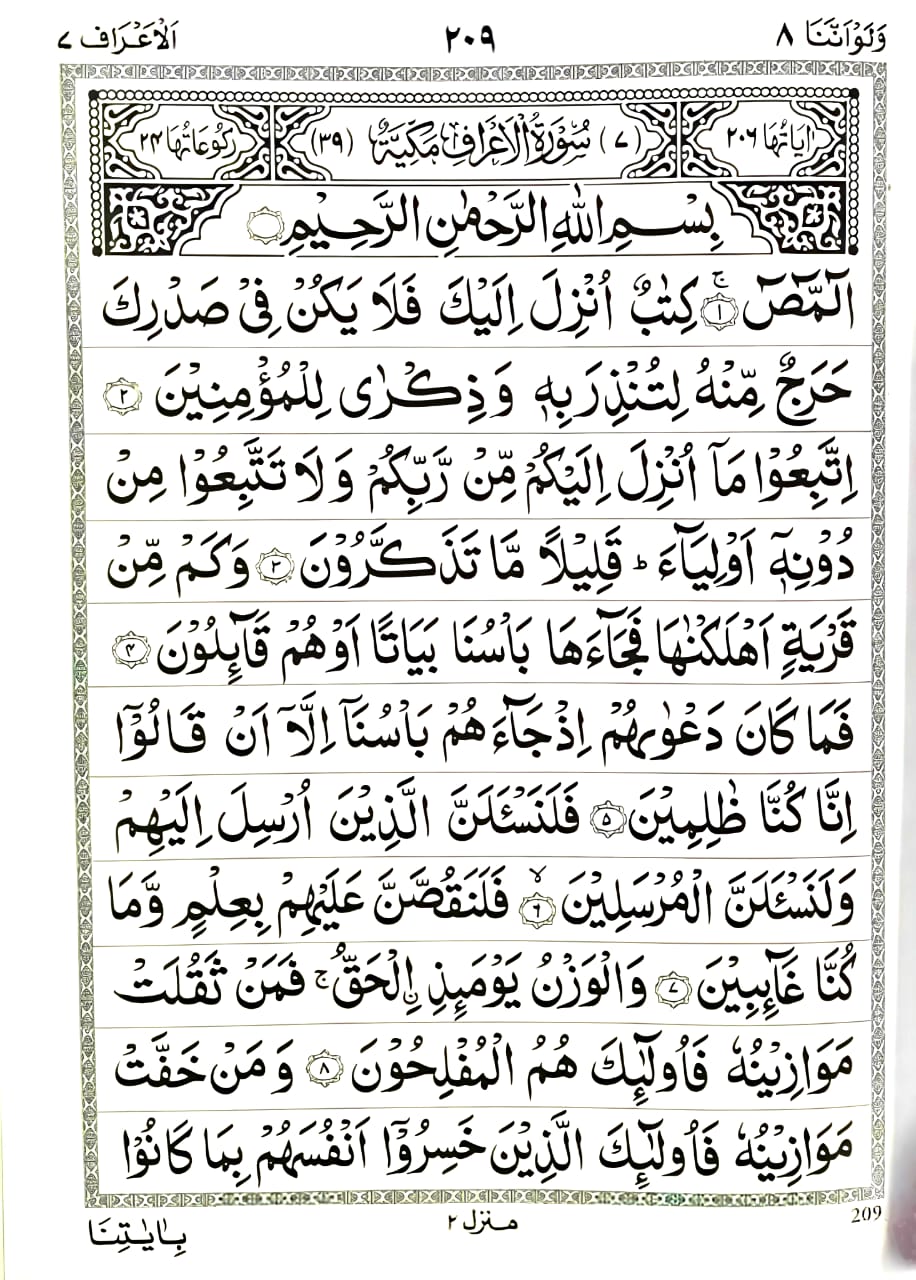 وَلَوْاَنَّنَا ٨ ٢٠٩ اَلْاَعْرَاف ٧
اٰيَاتُهَا ٢٠٦ (٧) سُوْرَةُ الْاَعْرَافِ مَكِّيَّةٌ (٣٩) رُكُوْعَاتُهَا ٢٤
بِسْمِ اللّٰهِ الرَّحْمٰنِ الرَّحِيْمِ
الٓمّٓصٓ ۚ ١ كِتٰبٌ اُنْزِلَ اِلَيْكَ فَلَا يَكُنْ فِىْ صَدْرِكَ
حَرَجٌ مِّنْهُ لِتُنْذِرَ بِهٖ وَذِكْرٰى لِلْمُؤْمِنِيْنَ ٢
اِتَّبِعُوْا مَاۤ اُنْزِلَ اِلَيْكُمْ مِّنْ رَّبِّكُمْ وَلَا تَتَّبِعُوْا مِنْ
دُوْنِهٖۤ اَوْلِيَآءَ ؕ قَلِيْلًا مَّا تَذَكَّرُوْنَ ٣ وَكَمْ مِّنْ
قَرْيَةٍ اَهْلَكْنٰهَا فَجَآءَهَا بَاْسُنَا بَيَاتًا اَوْهُمْ قَآئِلُوْنَ ٤
فَمَا كَانَ دَعْوٰىهُمْ اِذْجَآءَهُمْ بَاْسُنَاۤ اِلَّاۤ اَنْ قَالُوْۤا
اِنَّا كُنَّا ظٰلِمِيْنَ ٥ فَلَنَسْـَٔلَنَّ الَّذِيْنَ اُرْسِلَ اِلَيْهِمْ
وَلَنَسْـَٔلَنَّ الْمُرْسَلِيْنَ ۙ ٦ فَلَنَقُصَّنَّ عَلَيْهِمْ بِعِلْمٍ وَّمَا
كُنَّا غَآئِبِيْنَ ٧ وَالْوَزْنُ يَوْمَئِذِ ۨالْحَقُّ ۚ فَمَنْ ثَقُلَتْ
مَوَازِيْنُهٗ فَاُولٰٓئِكَ هُمُ الْمُفْلِحُوْنَ ٨ وَمَنْ خَفَّتْ
مَوَازِيْنُهٗ فَاُولٰٓئِكَ الَّذِيْنَ خَسِرُوْۤا اَنْفُسَهُمْ بِمَا كَانُوْا
209
منزل ٢
بِاٰيٰتِنَا